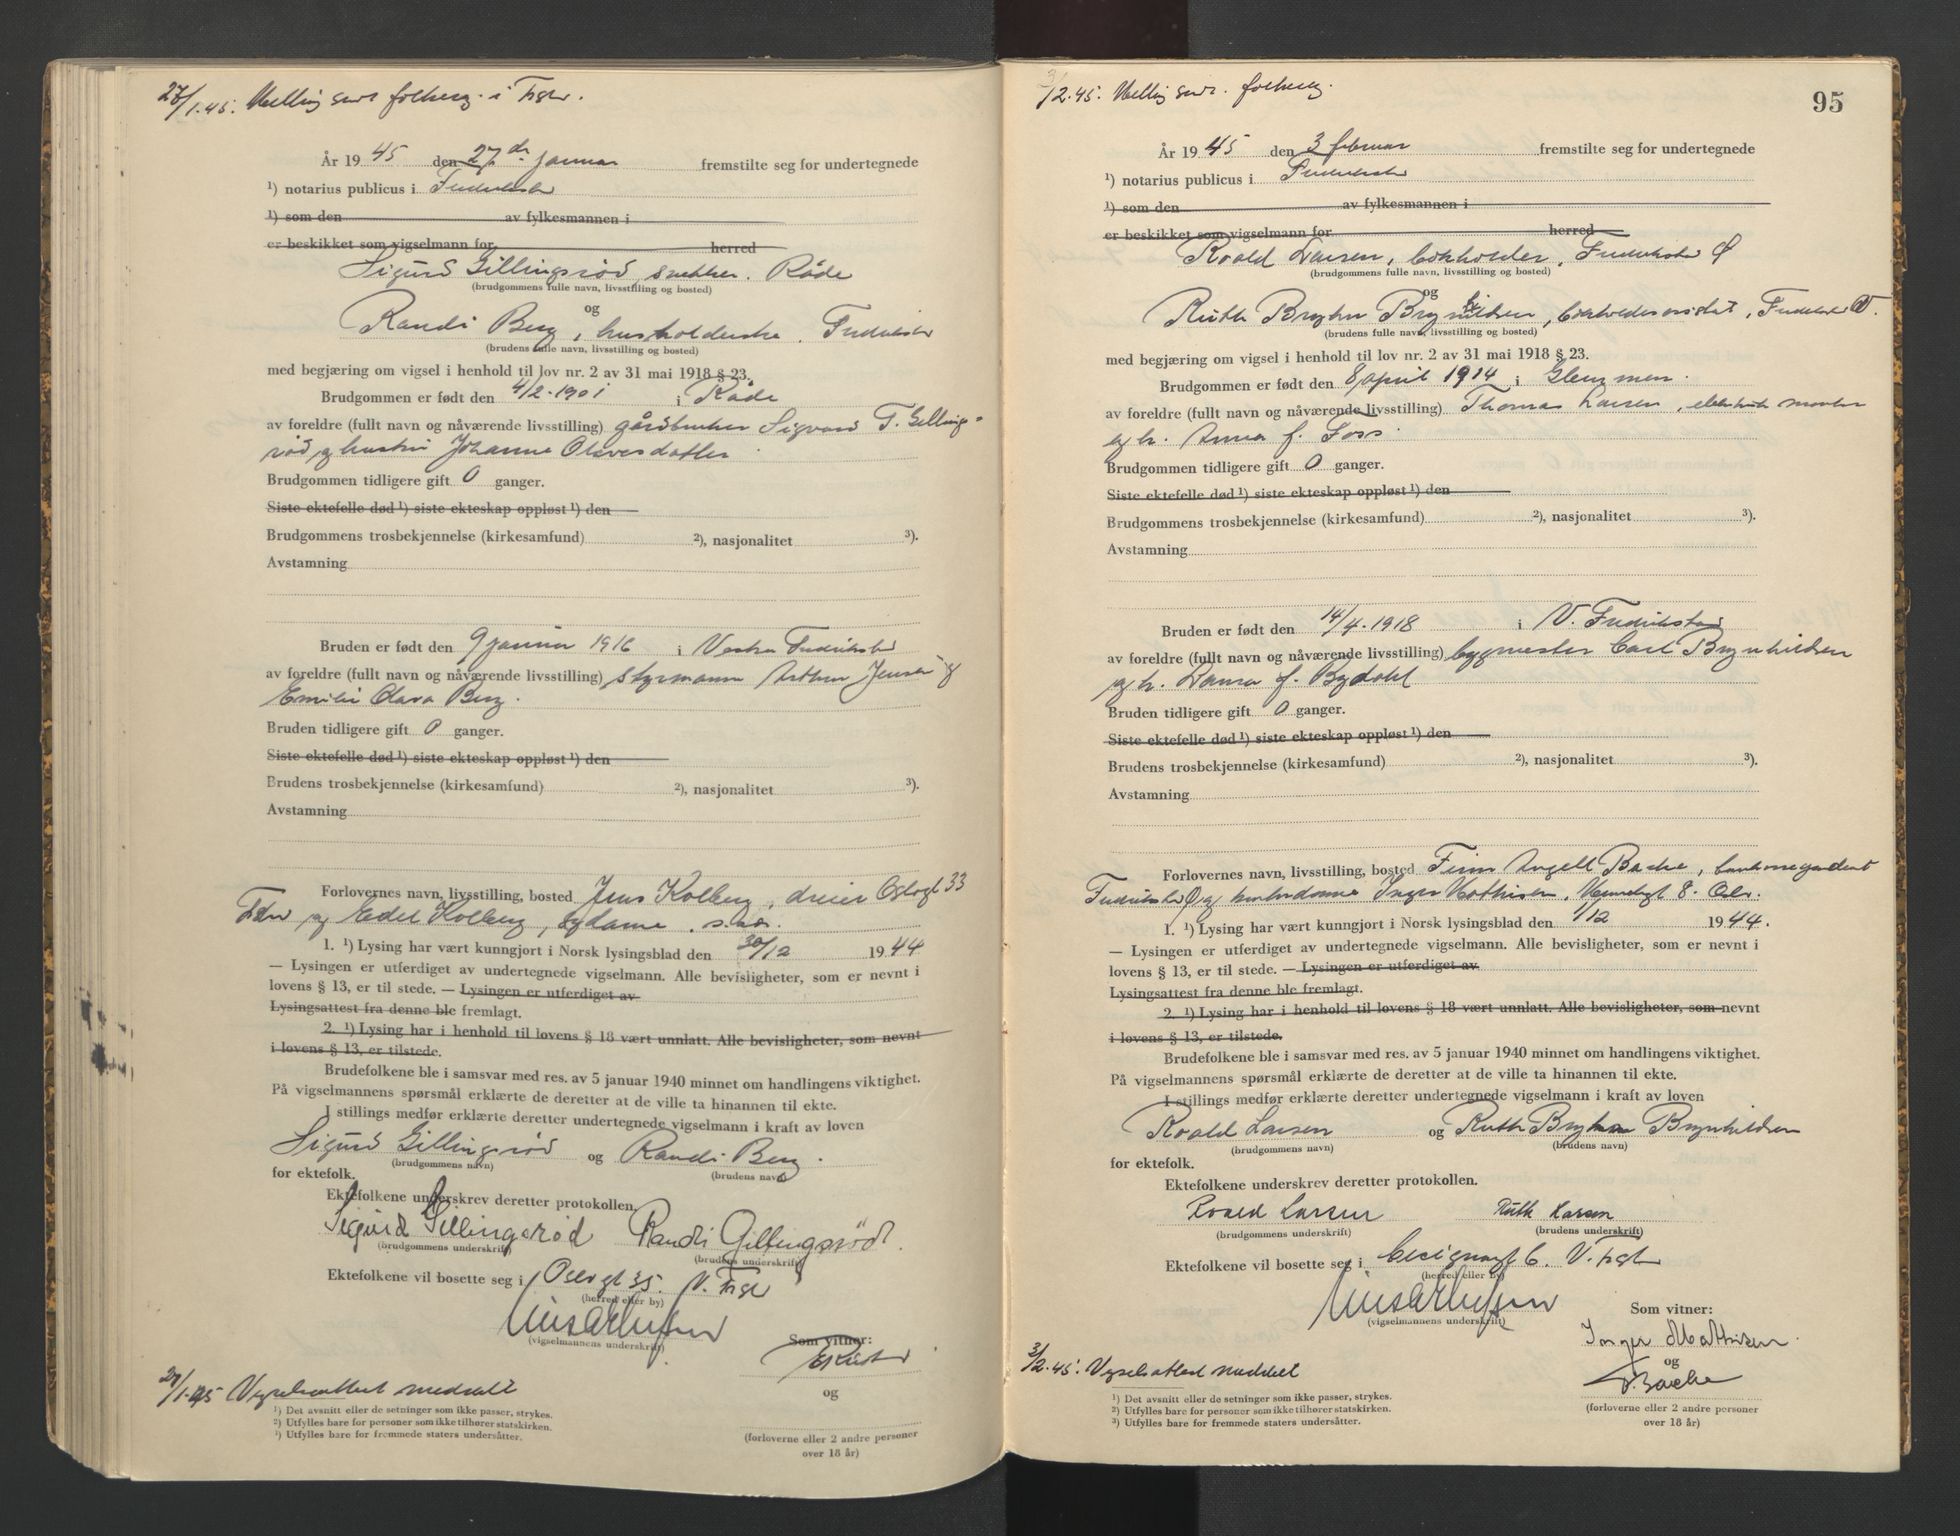 27/1.45. Melding sendt folkereg. i Fr.st.
År 1945 den 27de januar fremstilte seg for undertegnede
¹) notarius publicus i Fredrikstad
¹) som den av fylkesmannen i
er beskikket som vigselmann for herred
Sigurd Gillingsrød, snekker. Råde
(brudgommens fulle navn, livsstilling og bosted)
og
Randi Berg, husholderske. Fredrikstad
(brudens fulle navn, livsstilling og bosted)
med begjæring om vigsel i henhold til lov nr. 2 av 31 mai 1918 § 23.
Brudgommen er født den 4/2-1901 i Råde
av foreldre (fullt navn og nåværende livsstilling) gårdbruker Sigvard T. Gillings-
rød og hustru Johanne Olavesdatter
Brudgommen tidligere gift 0 ganger.
Siste ektefelle død ¹) siste ekteskap oppløst ¹) den
Brudgommens trosbekjennelse (kirkesamfund) ²), nasjonalitet ³).
Avstamning
Bruden er født den 9 januar 1916 i Vestre Fredrikstad
av foreldre (fullt navn og nåværende livsstilling) styrmann Arthur Jensen og
Emilie Clara Berg.
Bruden tidligere gift 0 ganger.
Siste ektefelle død ¹) siste ekteskap oppløst ¹) den
Brudens trosbekjennelse (kirkesamfund) ²), nasjonalitet ³).
Avstamning
Forlovernes navn, livsstilling, bosted Jens Kolberg, dreier Oslogt 33
og Edel Kolberg, sydame. s.st.
1. ¹) Lysing har vært kunngjort i Norsk lysingsblad den 30/12 1944
— Lysingen er utferdiget av undertegnede vigselmann. Alle bevisligheter, som er nevnt i
lovens § 13, er til stede. — Lysingen er utferdiget av
Lysingsattest fra denne ble fremlagt.
2. ¹) Lysing har i henhold til lovens § 18 vært unnlatt. Alle bevisligheter, som nevnt
i lovens § 13, er tilstede.
Brudefolkene ble i samsvar med res. av 5 januar 1940 minnet om handlingens viktighet.
På vigselmannens spørsmål erklærte de deretter at de ville ta hinannen til ekte.
I stillings medfør erklærte deretter undertegnede vigselmann i kraft av loven
Sigurd Gillingsrød og Randi Berg.
(brudgommens navn) (brudens navn)
for ektefolk.
Ektefolkene underskrev deretter protokollen.
Sigurd Gillingsrød Randi Gillingsrød.
(brudgommens underskrift) (brudens underskrift)
Ektefolkene vil bosette seg i Oslogt 35. V. Fr.st
(herred eller by)
(vigselmannens underskrift)
Som vitner:
og
27/1.45 Vigselsattest meddelt
¹) Det avsnitt eller de setninger som ikke passer, strykes.
²) Utfylles bare for personer som ikke tilhører statskirken.
³) Utfylles bare for fremmede staters undersåtter.
(forloverne eller 2 andre personer
over 18 år)
3/2.45. Melding sendt. folkereg.
95
År 1945 den 3 februar fremstilte seg for undertegnede
¹) notarius publicus i Fredrikstad
¹) som den av fylkesmannen i
er beskikket som vigselmann for herred
Roald Larsen, bokholder, Fredrikstad Ø
(brudgommens fulle navn, livsstilling og bosted)
og
Ruth Bryhn Brynhildsen, kontorassistent, Fredrikstad V.
(brudens fulle navn, livsstilling og bosted)
med begjæring om vigsel i henhold til lov nr. 2 av 31 mai 1918 § 23.
Brudgommen er født den 8 april 1914 i Glemmen.
av foreldre (fullt navn og nåværende livsstilling) Thomas Larsen, elektrisk montør
og h. Anna f. Foss.
Brudgommen tidligere gift 0 ganger.
Siste ektefelle død ¹) siste ekteskap oppløst ¹) den
Brudgommens trosbekjennelse (kirkesamfund) ²), nasjonalitet ³).
Avstamning
Bruden er født den 14/4-1918 i V. Fredrikstad
av foreldre (fullt navn og nåværende livsstilling) byggmester Carl Brynhildsen
og h. Laura f. Bydahl
Bruden tidligere gift 0 ganger.
Siste ektefelle død ¹) siste ekteskap oppløst ¹) den
Brudens trosbekjennelse (kirkesamfund) ²), nasjonalitet ³).
Avstamning
Forlovernes navn, livsstilling, bosted Finn Angell Bache,
Fredrikstad Ø og Inger Mathisen, 8.
1. ¹) Lysing har vært kunngjort i Norsk lysingsblad den 1/12 1944.
— Lysingen er utferdiget av undertegnede vigselmann. Alle bevisligheter, som er nevnt i
lovens § 13, er til stede. — Lysingen er utferdiget av
Lysingsattest fra denne ble fremlagt.
2. ¹) Lysing har i henhold til lovens § 18 vært unnlatt. Alle bevisligheter, som nevnt
i lovens § 13, er tilstede.
Brudefolkene ble i samsvar med res. av 5 januar 1940 minnet om handlingens viktighet.
På vigselmannens spørsmål erklærte de deretter at de ville ta hinannen til ekte.
I stillings medfør erklærte deretter undertegnede vigselmann i kraft av loven
Roald Larsen og Ruth Bryhn Brynhildsen
(brudgommens navn) (brudens navn)
for ektefolk.
Ektefolkene underskrev deretter protokollen.
Roald Larsen Ruth Larsen
(brudgommens underskrift) (brudens underskrift)
Ektefolkene vil bosette seg i 6. V. Fr.st
(herred eller by)
(vigselmannens underskrift)
Som vitner:
Inger Mathisen.
og
F. Bache
3/2.45. Vigselsattest meddelt
¹) Det avsnitt eller de setninger som ikke passer, strykes.
²) Utfylles bare for personer som ikke tilhører statskirken.
³) Utfylles bare for fremmede staters undersåtter.
(forloverne eller 2 andre personer
over 18 år)